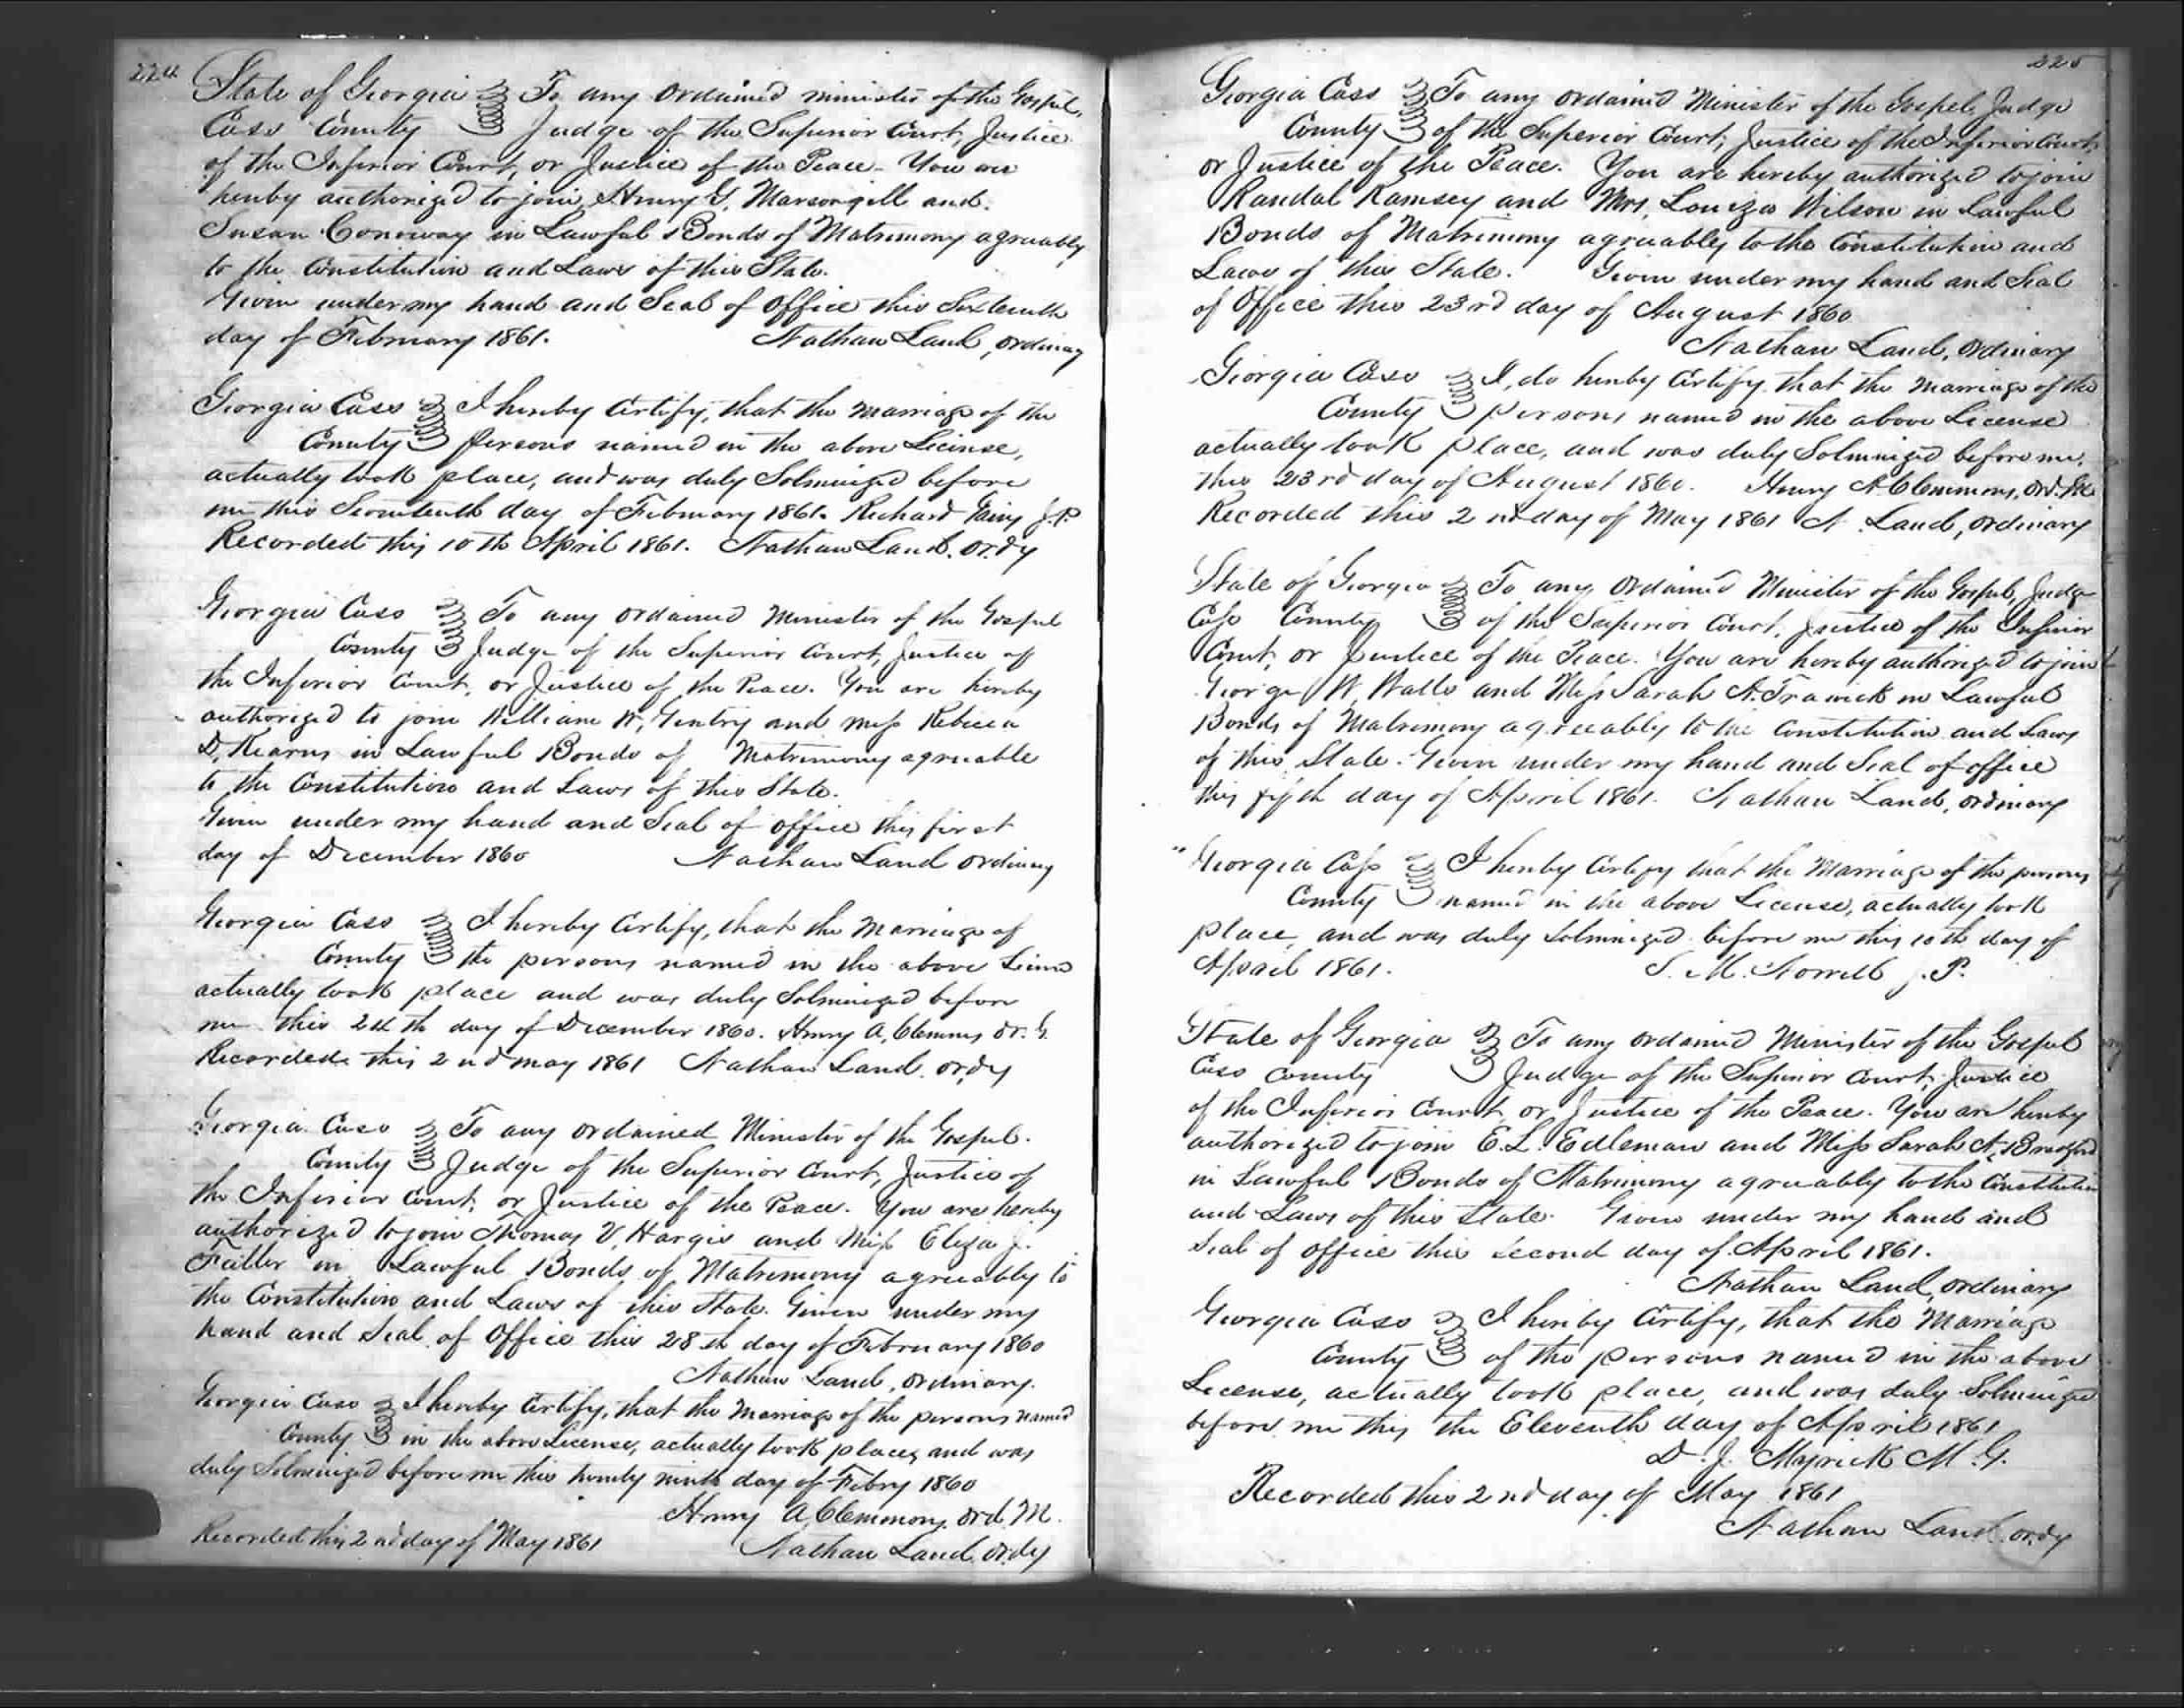 224
State of Georgia To any Ordained minister of the Gospel,
Cass County Judge of the Superior Court, Justice
of the Inferior Court, or Justice of the Peace. You are
hereby authorized to join, Henry G. Marsongill and
Susan Conoway in Lawful Bonds of Matrimony agreeably
to the Constitution and Laws of this State.
Given under my hand and Seal of Office this Sixteenth
day of February 1861. Nathan Land, Ordinary
Georgia Cass I hereby Certify, that the marriage of the
County persons named in the above License,
actually took place, and was duly Solminized before
me this Seventeenth day of February 1861. Richard J.P.
Recorded this 10th April 1861. Nathan Land. Ordy
Georgia Cass To any ordained Minister of the Gospel
County Judge of the Superior Court, Justice of
the Inferior Court, or Justice of the Peace. You are hereby
authorized to join William W. Gentry and Miss Rebecca
D. Kearns in Lawful Bonds of Matrimony agreeable
to the Constitution and Laws of this State.
Given under my hand and Seal of office this first
day of December 1860 Nathan Land Ordinary
Georgia Cass I hereby Certify, that the Marriage of
County the persons named in the above
actually took place and was duly Solminized before
me this 24th day of December 1860. Henry A. Clemmons Or. G.
Recorded this 2nd May 1861 Nathan Land. Ordy
Georgia Cass To any ordained Minister of the Gospel.
County Judge of the Superior Court, Justice of
the Inferior Court, or Justice of the Peace. You are hereby
authorized to join Thomas V. Hargis and Miss Eliza J.
Fuller in Lawful Bonds of Matrimony agreeably to
the Constitution and Laws of this State. Given under my
hand and Seal of Office this 28th day of February 1860
Nathan Land, Ordinary.
Georgia Cass I hereby Certify, that the Marriage of the persons named
County in the above License, actually took place, and was
duly Solminized before me this twenty ninth day of Febry 1860
Henry A. Clemmons. Ord. M.
Recorded this 2nd day of May 1861 Nathan Land Ordy
225
Georgia Cass To any ordained Minister of the Gospel, Judge
County of the Superior Court, Justice of the Inferior Court,
or Justice of the Peace. You are hereby authorized to join
Randal Ramsey and Mrs. Louiza Wilson in Lawful
Bonds of Matrimony agreeably to the Constitution and
Laws of this State. Given under my hand and Seal
of Office this 23rd day of August 1860
Nathan Land, Ordinary
Georgia Cass I, do hereby Certify that the Marriage of the
County persons named in the above License
actually took place, and was duly Solminized before me.
this 23rd day of August 1860. Henry A. Clemmons, Ord.
Recorded this 2nd day of May 1861 N. Land, Ordinary
State of Georgia To any Ordained Minister of the Gospel, Judge
Cass County of the Superior Court, Justice of the Inferior
Court, or Justice of the Peace. You are hereby authorized to join
George W. Watts and Miss Sarah A. Trawick in Lawful
Bonds of Matrimony agreeably to the Constitution and Laws
of this State. Given under my hand and Seal of office
this fifth day of April 1861. Nathan Land, Ordinary
Georgia Cass I hereby Certify that the Marriage of the persons
County named in the above License, actually took
place, and was duly Solminized before me this 10th day of
April 1861. S. M. Norrell J. P.
State of Georgia To any ordained Minister of the Gospel
Cass County Judge of the Superior Court, Justice
of the Inferior Court, or Justice of the Peace. You are hereby
authorized to join E. L. Edleman and Miss Sarah A. Bradford
in Lawful Bonds of Matrimony agreeably to the Constitution
and Laws of this State. Given under my hand and
Seal of office this Second day of April 1861.
Nathan Land, Ordinary
Georgia Cass I hereby Certify, that the Marriage
County of the persons named in the above
License, actually took place, and was duly Solminized
before me this the Eleventh day of April 1861
D. J. Myrick M. G.
Recorded this 2nd day of May 1861
Nathan Land. Ordy